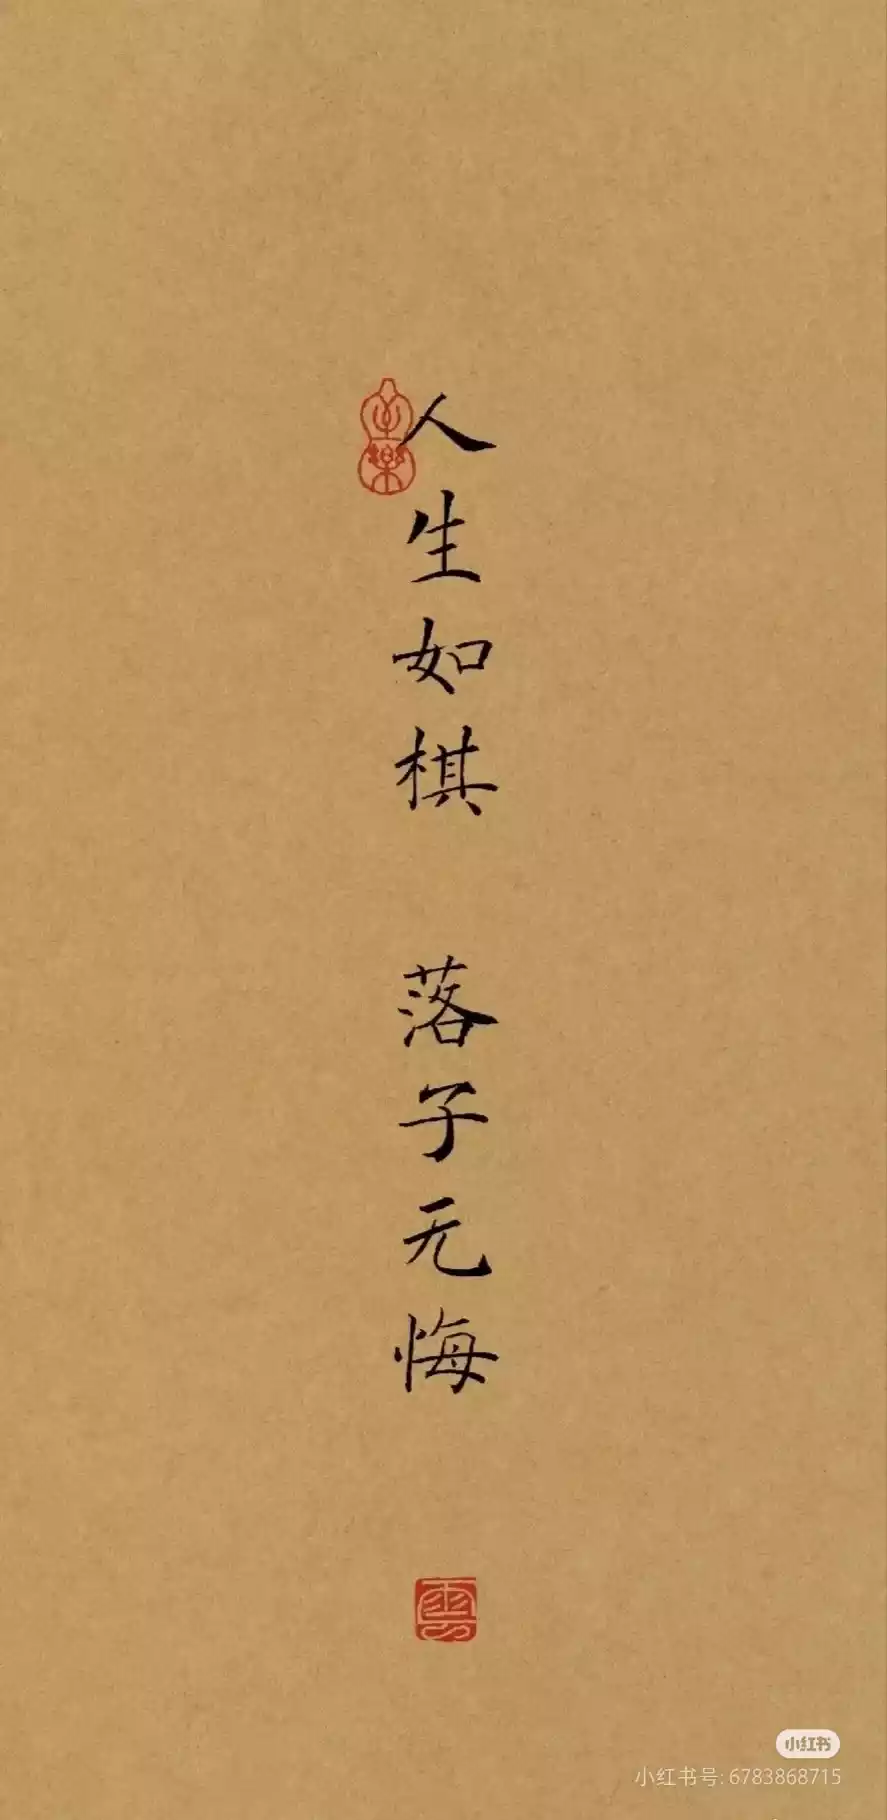 人生如棋 落子无悔
雲
小红书
小红书号: 6783868715